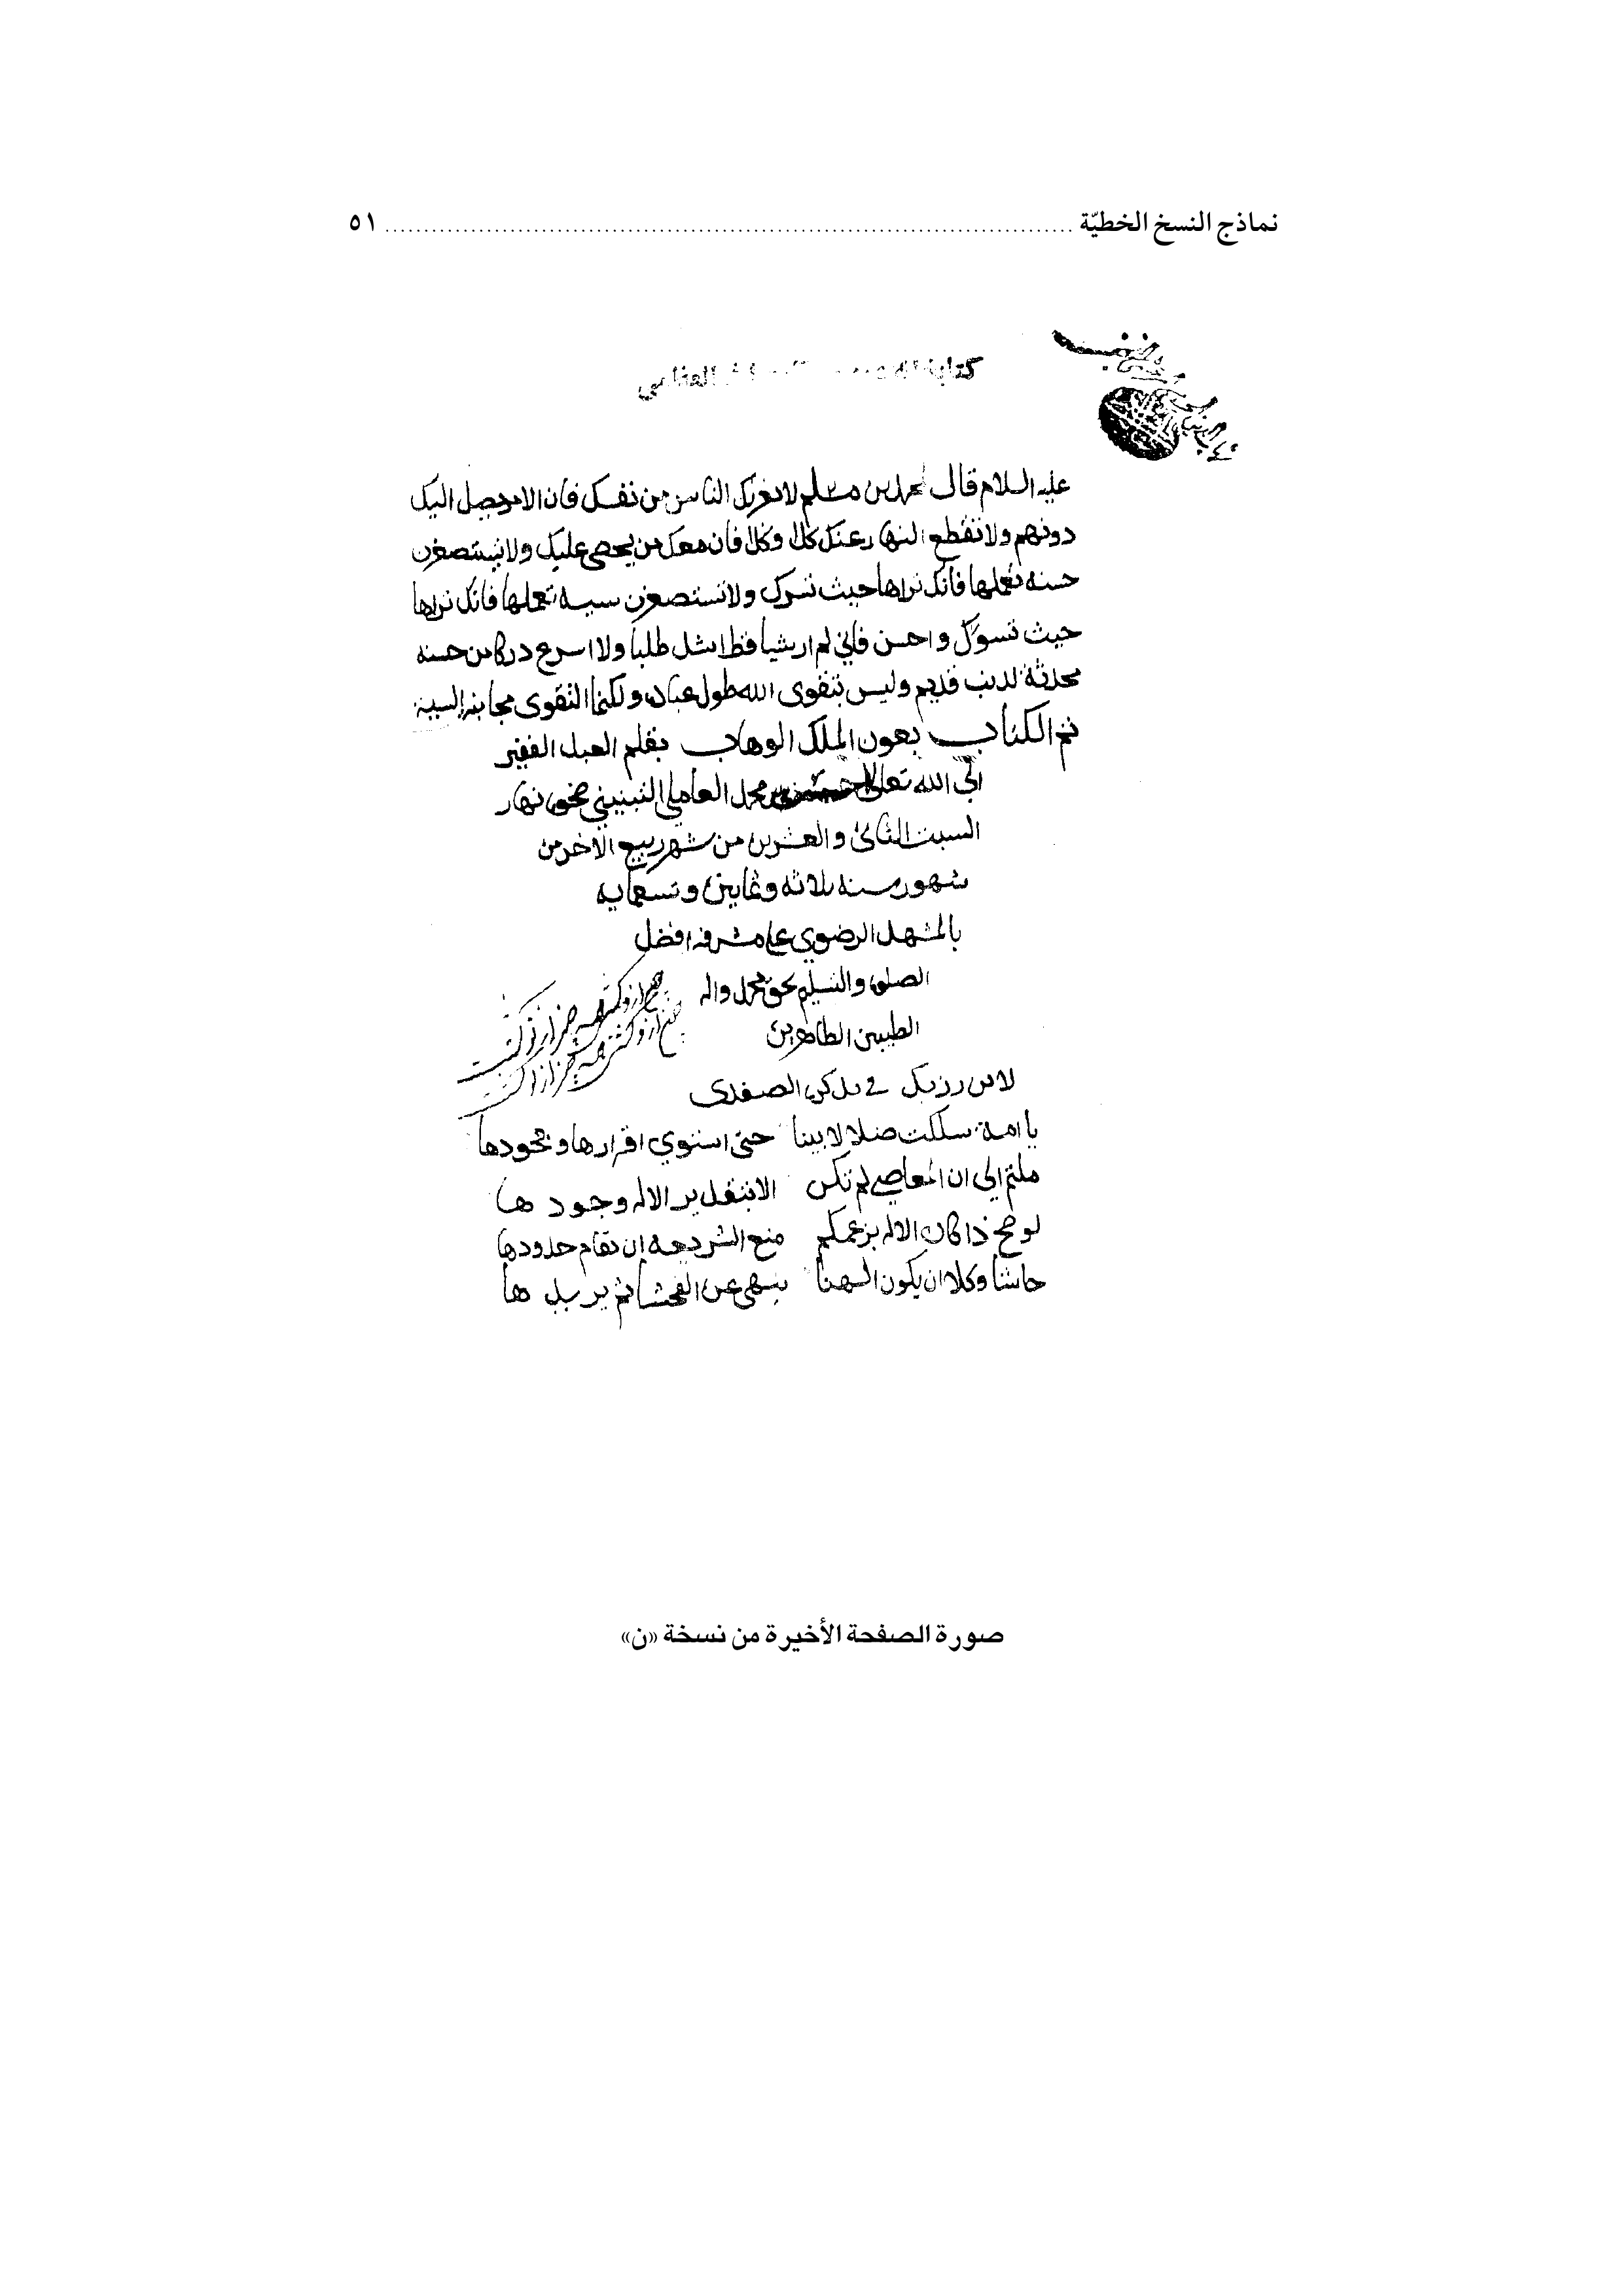 نماذج النسخ الخطيّة ........................................ ٥١
عليه السلام قال لمحمد بن مسلم لا يغرنك الناس من نفسك فان الامر يصل اليك
دونهم ولا تقطع النهار عنك كذا وكذا فان معك من يحصى عليك ولا تستصغرن
حسنه تعملها فانك تراها حيث تسرك ولا تستصغرن سيه تعملها فانك تراها
حيث تسوؤك واحسن فاني لم ار شيا قط اشد طلبا ولا اسرع دركا من حسنه
محدثة لذنب قديم وليس بتقوى الله طول عباده ولكنها التقوى مجانبة السيية
تم الكتاب بعون الملك الوهاب بقلم العبد الفقير
الي الله تعالى بن محمد العاملي التبنيني ضحوه نهار
السبت الثاني والعشرين من شهر ربيع الاخر من
شهور سنه ثلاثه وثمانين وتسعمايه
بالمشهد الرضوي على مشرفه افضل
الصلوه والتسليم بحق محمد واله
الطيبين الطاهرين
لابن رزيك في تذكره الصفدى
يا امة سلكت ضلالا بينا حتى استوي اقرارها وجحودها
ملتم الى ان المعاصي لم تكن الا بتقدير الاله وجودها
لو صح ذا كان الاله بزعمكم منع الشريعه ان تقام حدودها
حاشا وكلا ان يكون الهنا ينهى عن الفحشا ثم يريدها
صورة الصفحة الأخيرة من نسخة «ن»